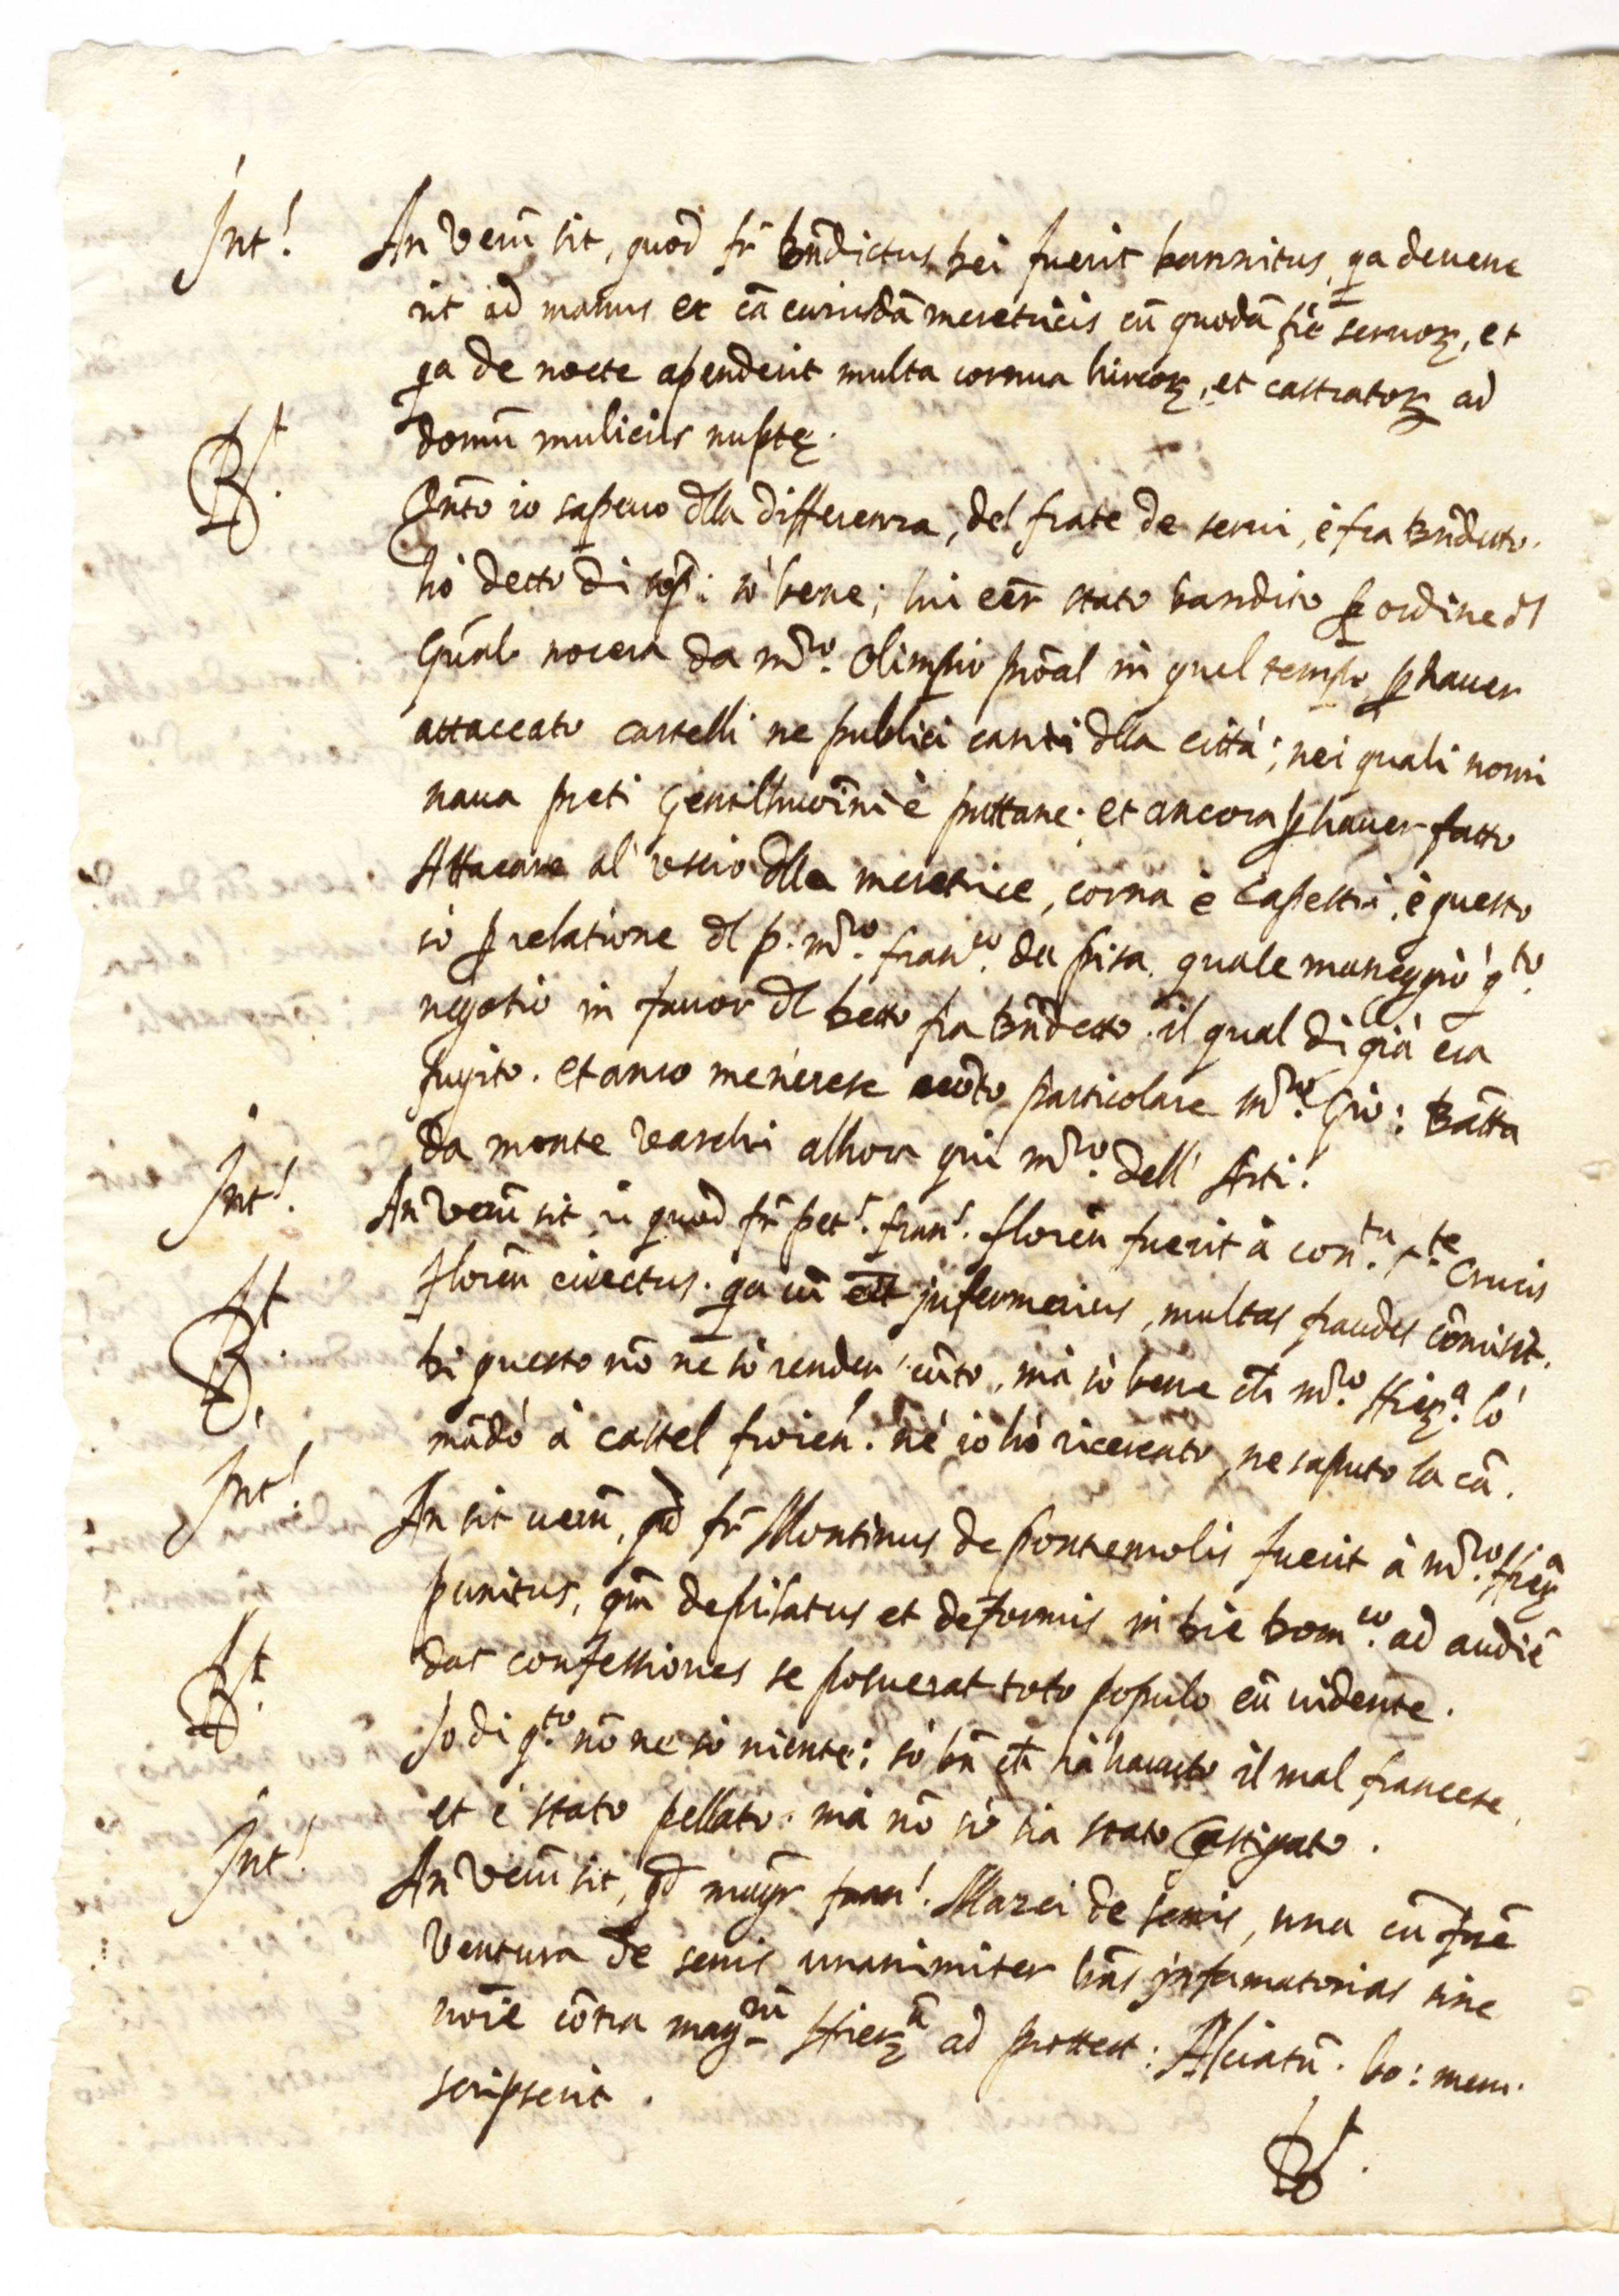 Int.! An verũ sit, quod fr̃ Bñdictus bei fuerit bannitus, qa devene
rit ad manus ex cã cuiusdã meretricis cũ quodã frẽ servoꝝ, et
qa de nocte apenderit multa cornua hircoꝝ, et castratoꝝ ad
domũ mulieris nuptę.
Rt. Qñto io sapevo dlla differenza, del frate de servi, è fra Bñdetto.
hò detto di sopᵃ: sò bene; lui eẽr stato bandito ꝑ ordine dl
Gñal nocera da mrõ. Olimpio proãl in quel tempo, ꝑ haver
attaccato cartelli ne publici canti dlla città; nei quali nomi
nava preti gentilhuomĩni è puttane. et ancora ꝑ haver fatto
Attacare al' uscio dlla meretrice, corna è capestri, è questo
sò ꝑ relatione dl p. mrõ. franco. da pisa. quale maneggiò qto.
negotio in favor dl betto fra Bñdetto. il qual di già era
fugito. et anco me ne rese particolare mrõ. Gio: Batta
da monte varchi alhora qui mrõ. dell' Arti.
Int.! An verũ sit, quod fr̃ pet!. fran!. florẽn fuerit à contu. Ste Crucis
florẽn eiectus. qa cũ eẽt infermerius, multas fraudes cõmisit.
Rt. Di questo nõ ne sò render cũto, mà sò bene ch̃ mrõ. Hierᵃ. lo
mãdò à castel fiorẽn. nè io hò ricercato, ne saputo la cã.
Int.! An sit verũ, qd̃ fr̃ Montinus de pontremolis fuerit à mrõ. Hierᵃ
punitus, qm̃ depilatus et deformis in die Domco. ad audiẽ
das confessiones se posuerat toto populo eũ vidente.
Rt. Io di qto. nõ ne sò niente: sò bñ ch̃ hà havuto il mal francese,
et è stato pellato. mà nõ sò sia stato castigato.
Int.! An verũ sit, qd̃ magr̃ fran!. Mazei de senis, una cũ frẽ
Ventura de senis unanimiter lrãs infamatorias sine
noĩe cõtra magrũ Hierã ad protect: Alciatũ. bo: mem.
scripserit.
Rt.